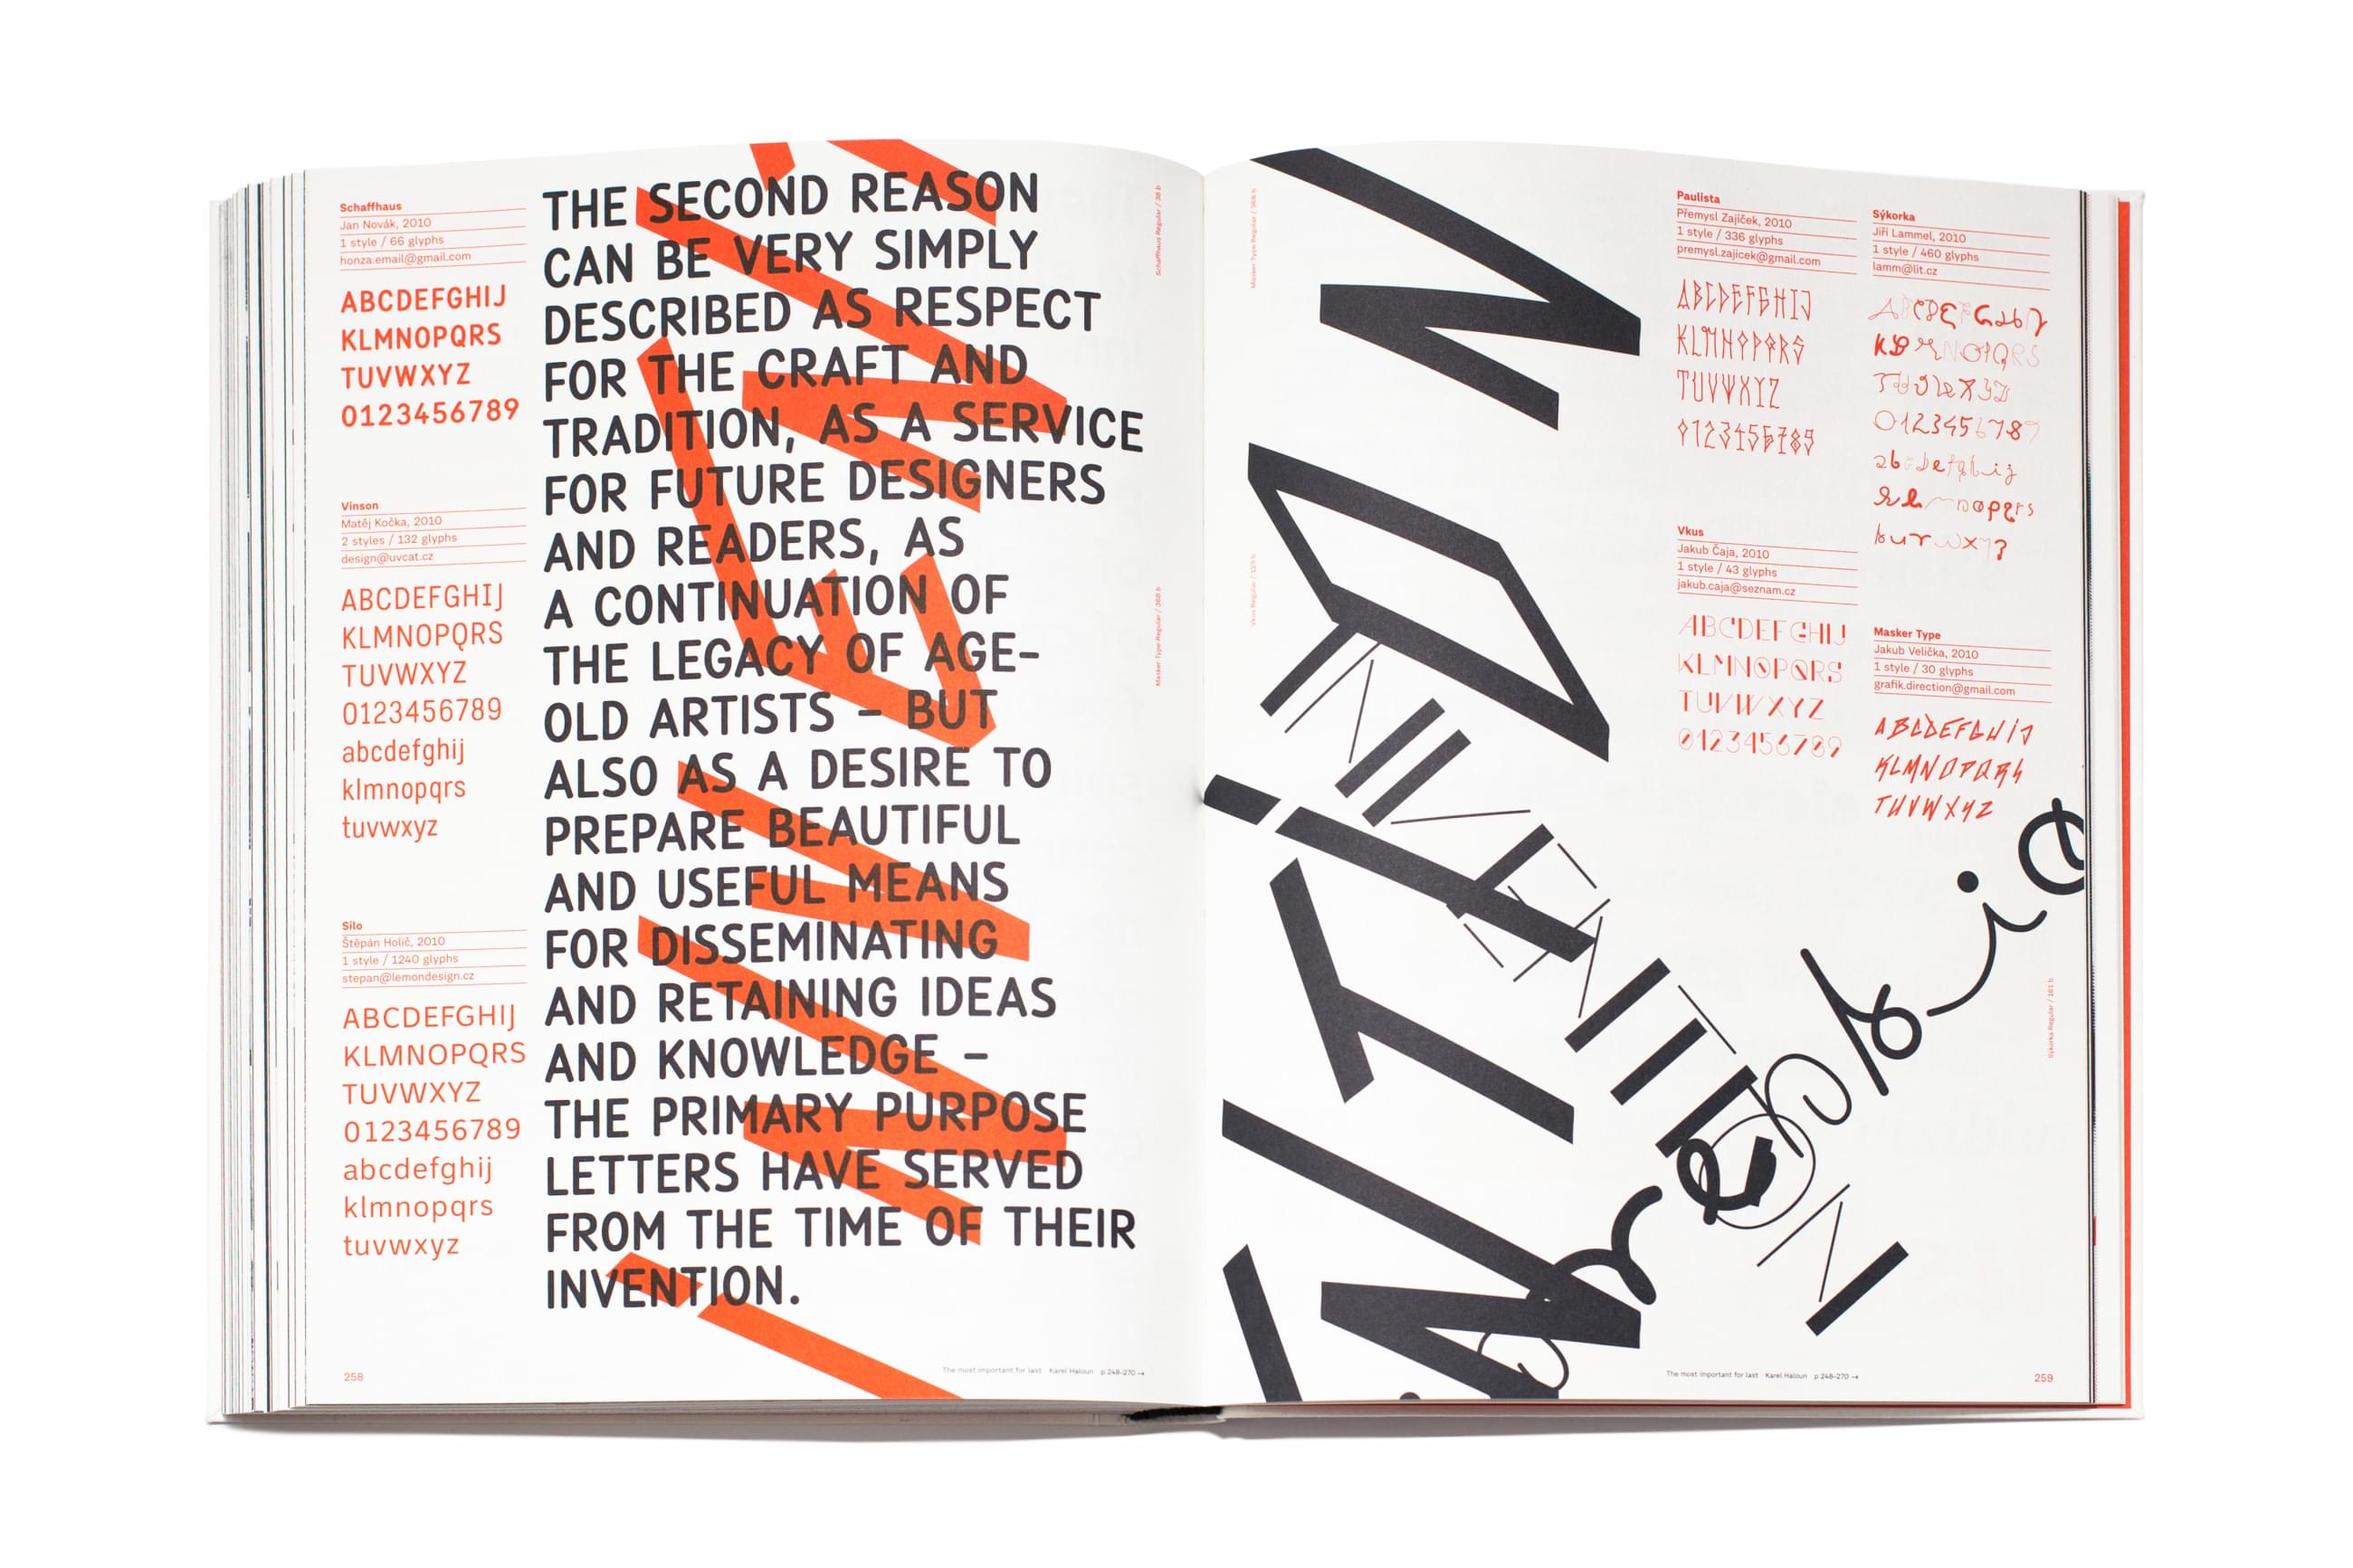 Schaffhaus
Jan Novák, 2010
1 style / 66 glyphs
honza.email@gmail.com
ABCDEFGHIJ
KLMNOPQRS
TUVWXYZ
0123456789
Vinson
Matěj Kočka, 2010
2 styles / 132 glyphs
design@uvcat.cz
ABCDEFGHIJ
KLMNOPQRS
TUVWXYZ
0123456789
abcdefghij
klmnopqrs
tuvwxyz
Silo
Štěpán Holič, 2010
1 style / 1240 glyphs
stepan@lemondesign.cz
ABCDEFGHIJ
KLMNOPQRS
TUVWXYZ
0123456789
abcdefghij
klmnopqrs
tuvwxyz
258
THE SECOND REASON
CAN BE VERY SIMPLY
DESCRIBED AS RESPECT
FOR THE CRAFT AND
TRADITION, AS A SERVICE
FOR FUTURE DESIGNERS
AND READERS, AS
A CONTINUATION OF
THE LEGACY OF AGE-
OLD ARTISTS – BUT
ALSO AS A DESIRE TO
PREPARE BEAUTIFUL
AND USEFUL MEANS
FOR DISSEMINATING
AND RETAINING IDEAS
AND KNOWLEDGE –
THE PRIMARY PURPOSE
LETTERS HAVE SERVED
FROM THE TIME OF THEIR
INVENTION.
Schaffhaus Regular / 38 b
Masker Type Regular / 368 b
The most important for last Karel Haloun p 248–270 →
Masker Type Regular / 368 b
Vkus Regular / 129 b
INVENTION
Paulista
Přemysl Zajíček, 2010
1 style / 336 glyphs
premysl.zajicek@gmail.com
ABCDEFGHIJ
KLMNOPQRS
TUVWXYZ
0123456789
Vkus
Jakub Čaja, 2010
1 style / 43 glyphs
jakub.caja@seznam.cz
ABCDEFGHIJ
KLMNOPQRS
TUVWXYZ
0123456789
Sýkorka
Jiří Lammel, 2010
1 style / 460 glyphs
lamm@lit.cz
0123456789
abcdefghij
Masker Type
Jakub Velička, 2010
1 style / 30 glyphs
grafik.direction@gmail.com
ABCDEFGHIJ
KLMNOPQRS
TUVWXYZ
Sýkorka Regular / 161 b
The most important for last Karel Haloun p 248–270 →
259